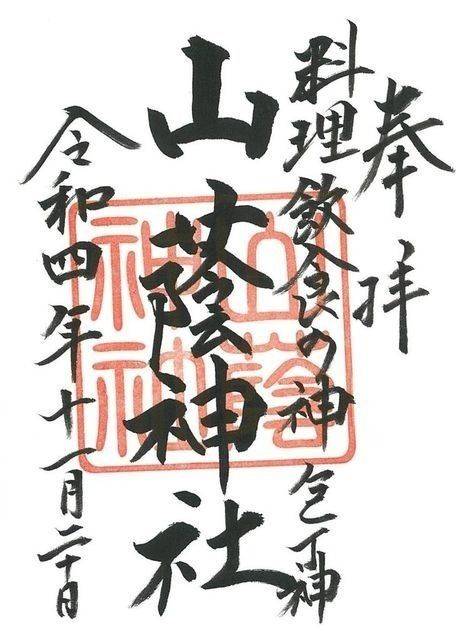 奉拝
料理飲食の神 包丁神
山蔭神社
令和四年十一月二十日
山蔭
神社